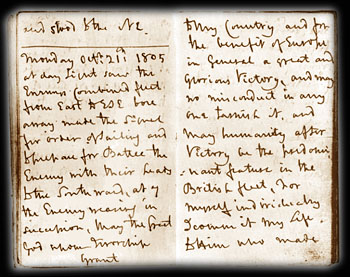 and stood to the Nd.
Monday Octr. 21st 1805
at day Light saw the
Enemys Combined fleet
from East to ESE bore
away made the Signal
for order of Sailing and
to prepare for Battle the
Enemy with their heads
to the Southward, at 7
the Enemy wearing in
succession, May the Great
God whom I worship
Grant
to my Country and for
the benefit of Europe
in General a great and
Glorious Victory, and may
no misconduct in any
one tarnish it, and
may humanity after
Victory be the predomi-
nant feature in the
British fleet, For
myself individually
I commit my Life
to Him who made